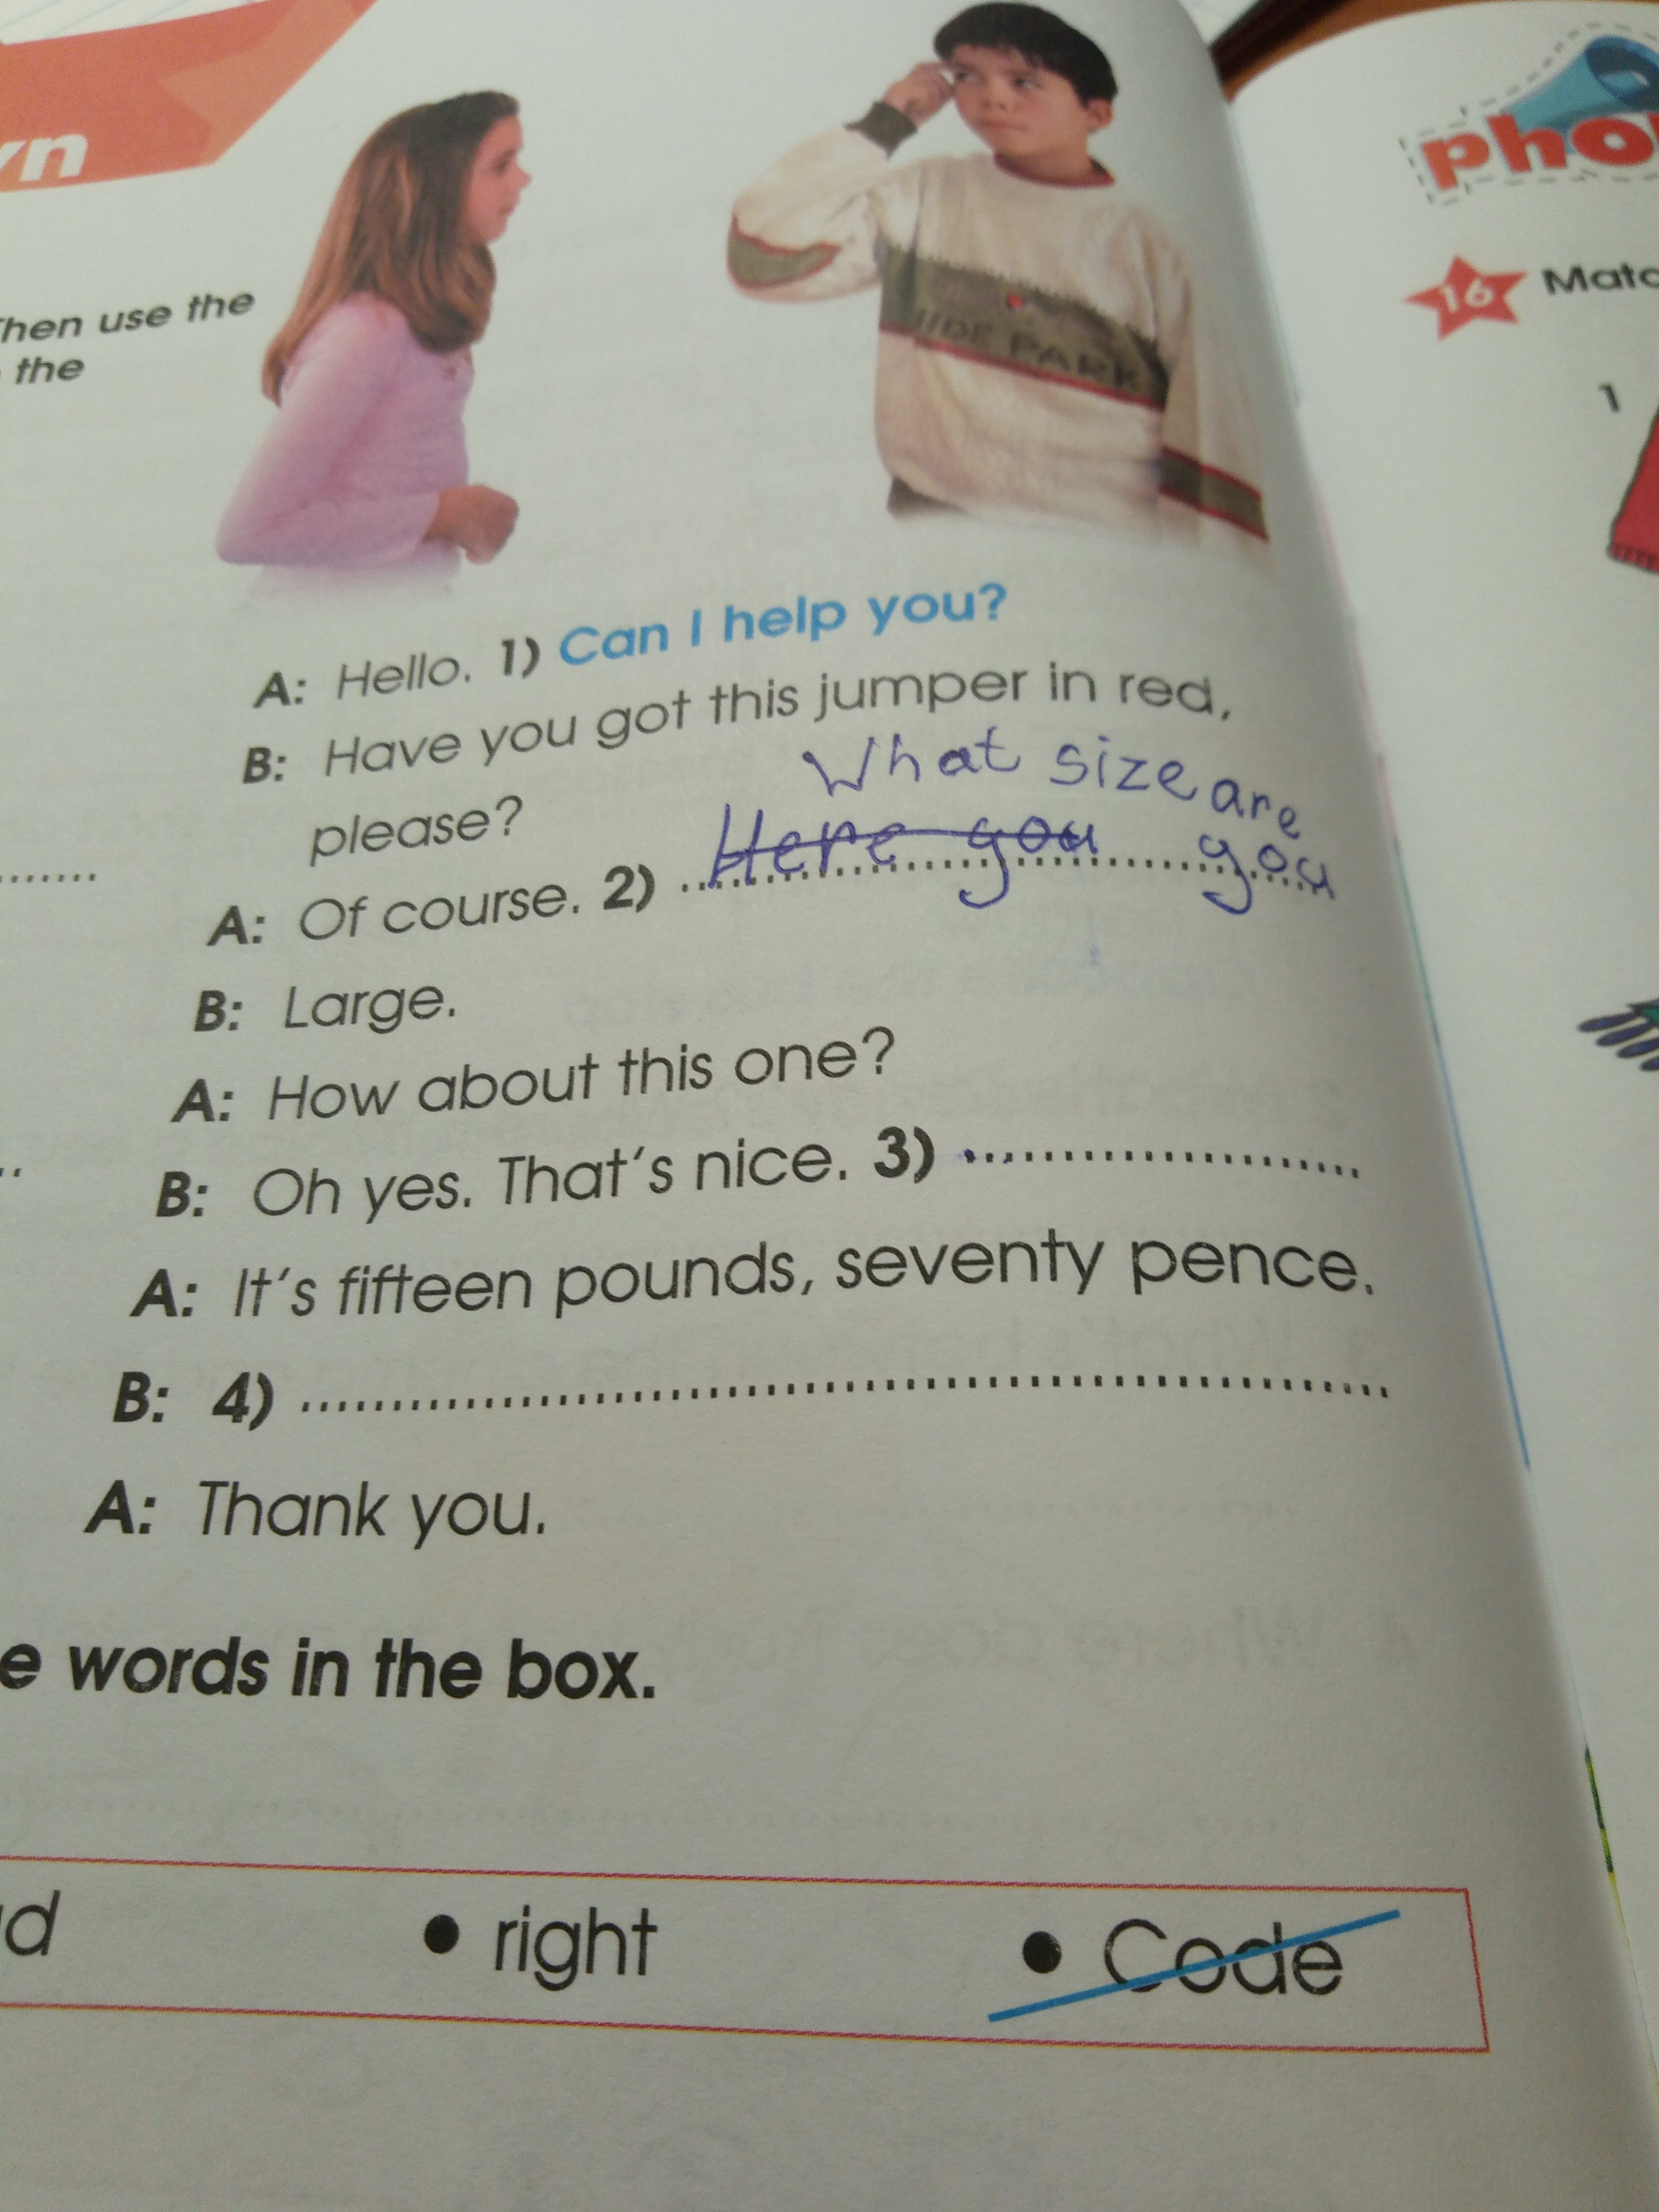 Then use the
the
A: Hello. 1) Can I help you?
B: Have you got this jumper in red,
please?
What size are
Here you you
A: Of course. 2) ..........
B: Large.
A: How about this one?
B: Oh yes. That's nice. 3) ..........
A: It's fifteen pounds, seventy pence.
B: 4) ..........
A: Thank you.
words in the box.
• right • Code
HIDE PARK
pho
16 Matc
1